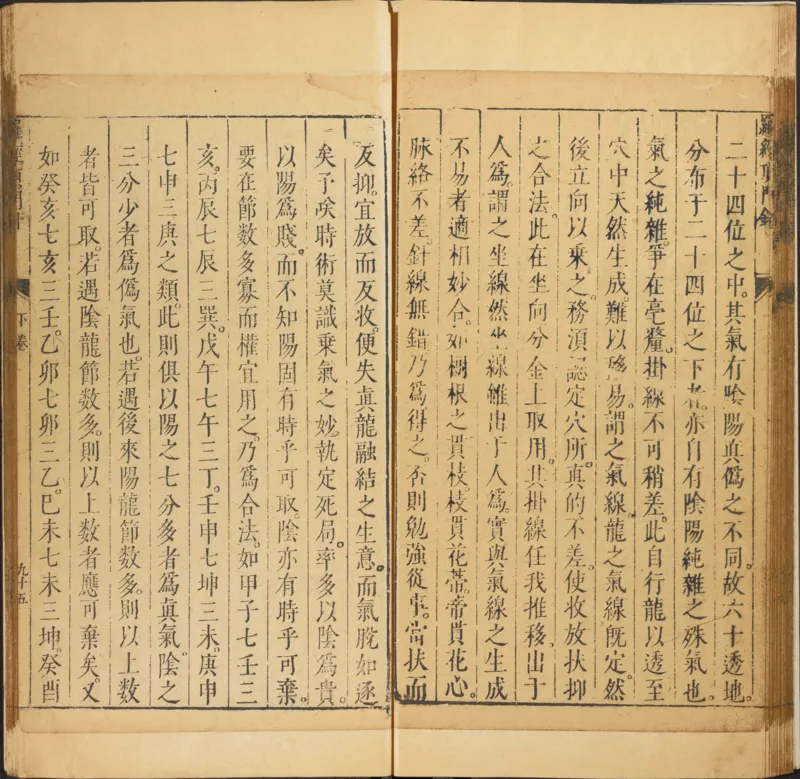 羅經頂門針
二十四位之中。其氣有陰陽真僞之不同。故六十透地。
分布于二十四位之下者。亦自有陰陽純雜之殊氣也。
氣之純雜。爭在毫釐。掛線不可稍差。此自行龍以透至
穴中天然生成。難以移易。謂之氣線。龍之氣線旣定。然
後立向以乘之。務須認定穴所。真的不差。使收放扶抑
之合法。此在坐向分金上取用。其掛線任我推移。出于
人爲。謂之坐線。然坐線雖出于人爲。實與氣線之生成
不易者適相妙合。如樹根之貫枝。枝貫花蒂。蒂貫花心。
脉絡不差。針線無錯。乃爲得之。否則勉強從事。當扶而
反抑。宜放而反收。便失真龍融結之生意。而氣脫如逐
矣。予嘆時術莫識乘氣之妙。執定死局。率多以陰爲貴。
以陽爲賤。而不知陽固有時乎可取。陰亦有時乎可棄。
要在節数多寡而權宜用之。乃爲合法。如甲子七壬三
亥。丙辰七辰三巽。戊午七午三丁。壬申七坤三未。庚申
七申三庚之類。此則俱以陽之七分多者爲真氣。陰之
三分少者爲僞氣也。若遇後來陽龍節数多。則以上数
者皆可取。若遇陰龍節数多。則以上数者應可棄矣。又
如癸亥七亥三壬。乙卯七卯三乙。巳未七未三坤。癸酉
羅經頂門針
下卷
九十五